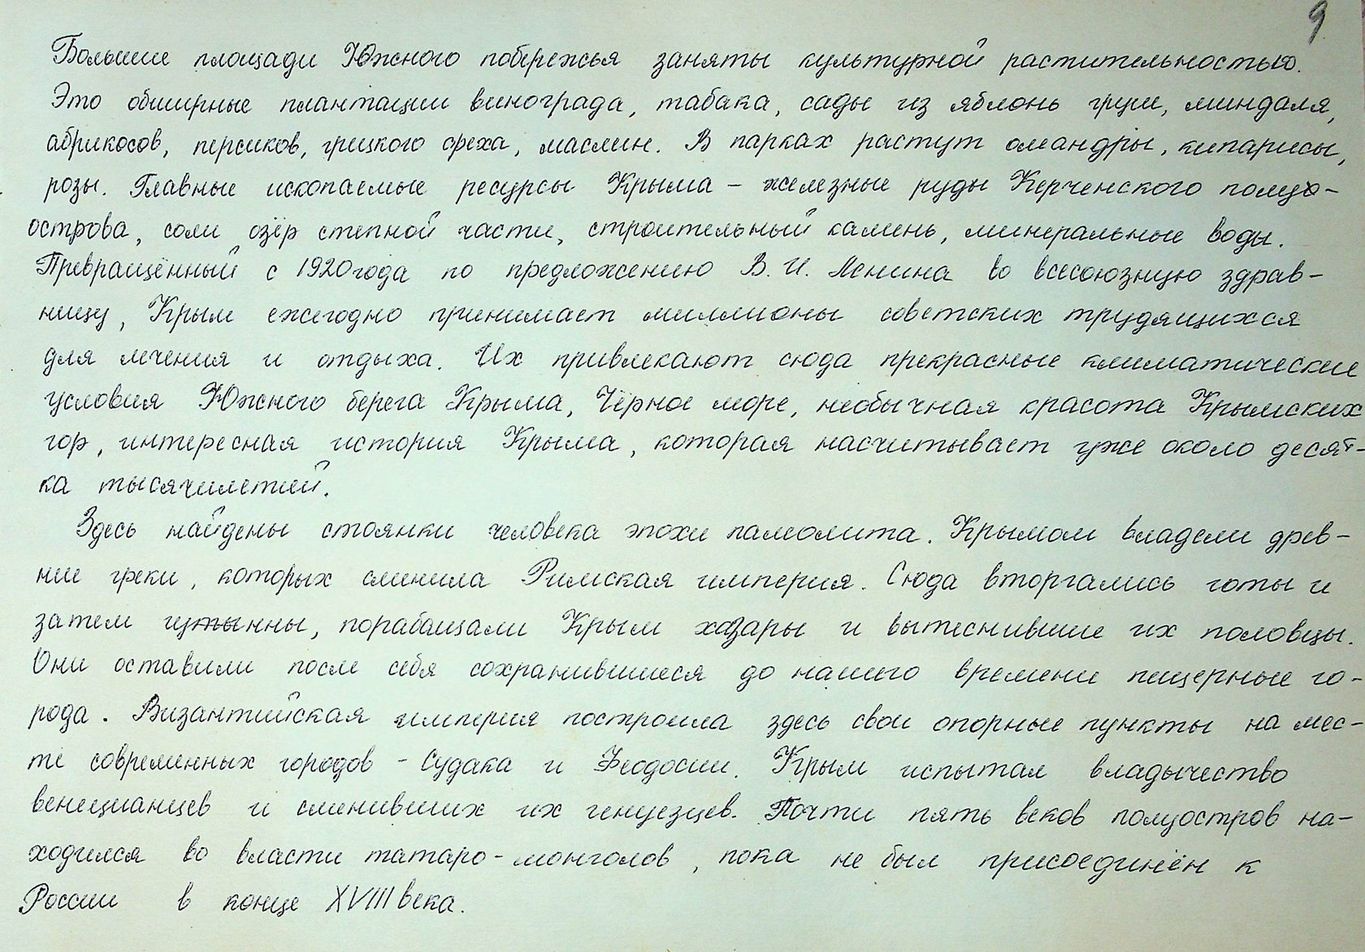 9
Большие площади Южного побережья заняты культурной растительностью.
Это обширные плантации винограда, табака, сады из яблонь груш, миндаля,
абрикосов, персиков, грецкого ореха, маслин. В парках растут олеандры, кипарисы,
розы. Главные ископаемые ресурсы Крыма – железные руды Керченского полуо-
острова, соли озёр степной части, строительный камень, минеральные воды.
Превращённый с 1920 года по предложению В. И. Ленина во всесоюзную здрав-
ницу, Крым ежегодно принимает миллионы советских трудящихся
для лечения и отдыха. Их привлекают сюда прекрасные климатические
условия Южного берега Крыма, Чёрное море, необычная красота Крымских
гор, интересная история Крыма, которая насчитывает уже около десят-
ка тысячилетий.
Здесь найдены стоянки человека эпохи палеолита. Крымом владели древ-
ние греки, которых сменила Римская империя. Сюда вторгались готы и
затем гунны, порабощали Крым хазары и вытеснившие их половцы.
Они оставили после себя сохранившиеся до нашего времени пещерные го-
рода. Византийская империя построила здесь свои опорные пункты на мес-
те современных городов - Судака и Феодосии. Крым испытал владычество
венецианцев и сменивших их генуезцев. Почти пять веков полуостров на-
ходился во власти татаро-монголов, пока не был присоединён к
России в конце XVIII века.